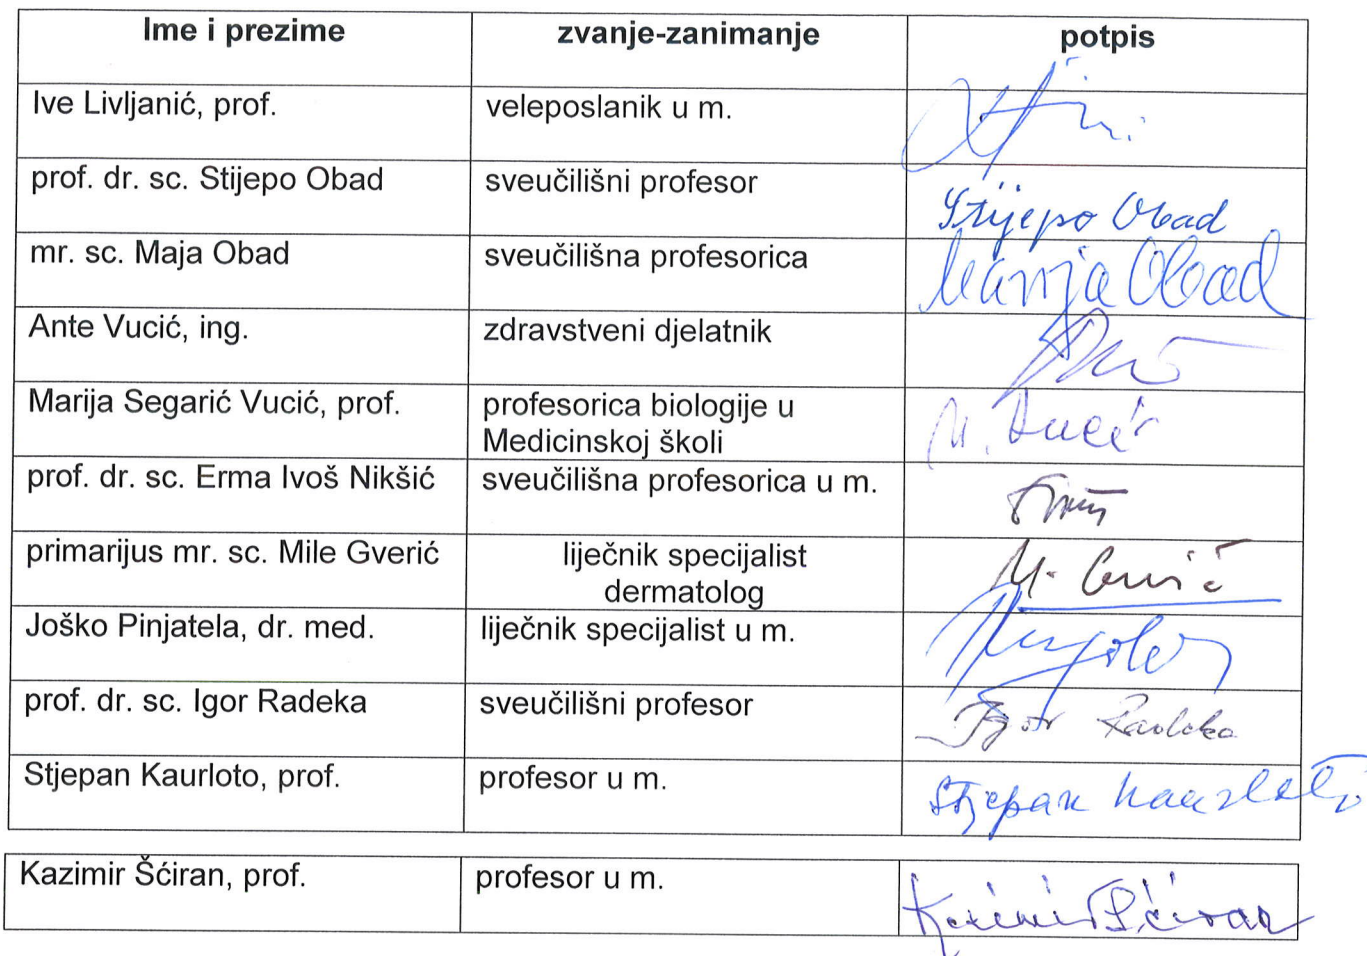 Ime i prezime zvanje-zanimanje potpis
Ive Livljanić, prof. veleposlanik u m.
prof. dr. sc. Stijepo Obad sveučilišni profesor Stijepo Obad
mr. sc. Maja Obad sveučilišna profesorica Marija Obad
Ante Vucić, ing. zdravstveni djelatnik
Marija Segarić Vucić, prof. profesorica biologije u M. Vucić
Medicinskoj školi
prof. dr. sc. Erma Ivoš Nikšić sveučilišna profesorica u m.
primarijus mr. sc. Mile Gverić liječnik specijalist M.
dermatolog
Joško Pinjatela, dr. med. liječnik specijalist u m.
prof. dr. sc. Igor Radeka sveučilišni profesor Igor Radeka
Stjepan Kaurloto, prof. profesor u m. Stjepan Kaurloto
Kazimir Šćiran, prof. profesor u m. Kazimir Šćiran